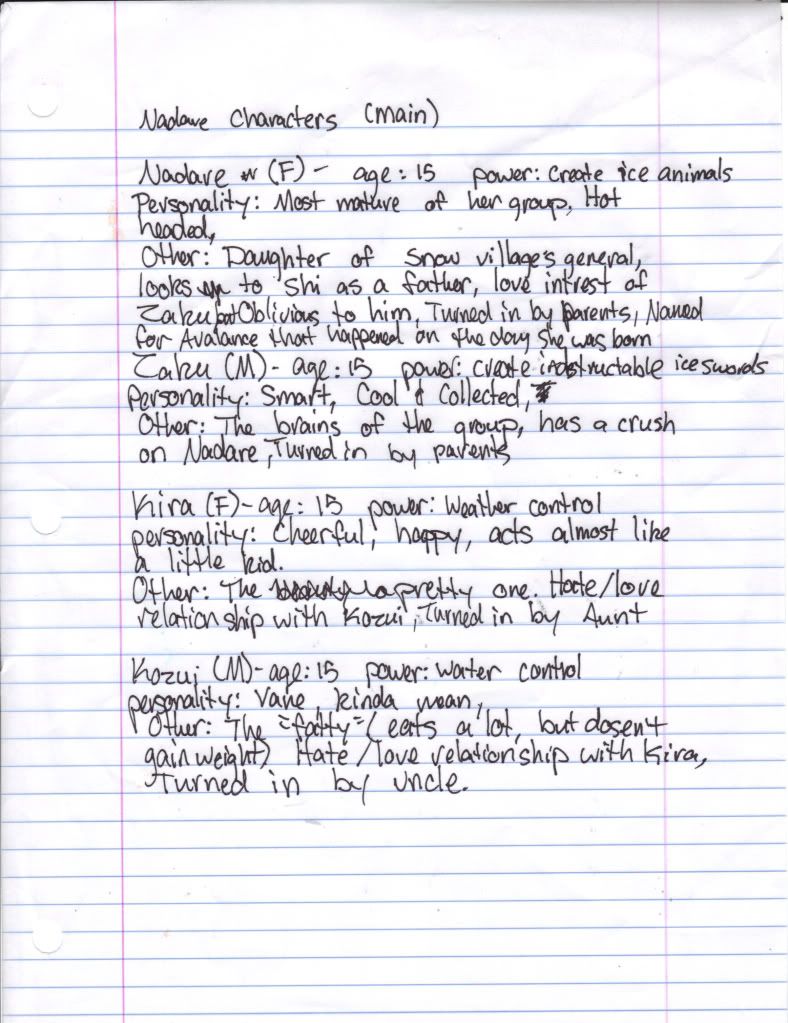 Nadare Characters (Main)
Nadare (F) - age: 15 power: Create ice animals
Personality: Most mature of her group, Hot
headed,
Other: Daughter of snow village's general,
looks up to Shi as a father, love intrest of
Zaku but Oblivious to him, Turned in by parents, Named
for Avalance that happened on the day she was born
Zaku (M) - age: 15 power: create indistructable ice swords
Personality: Smart, Cool & Collected,
Other: The brains of the group, has a crush
on Nadare, Turned in by parents
Kira (F) - age: 15 power: Weather control
personality: Cheerful, happy, acts almost like
a little kid.
Other: The pretty one. Hate/love
relationship with Kozui, Turned in by Aunt
Kozui (M) - age: 15 power: water control
personality: Vane, kinda mean,
Other: The "fatty" (eats a lot, but dosen't
gain weight) Hate/love relationship with Kira,
Turned in by uncle.